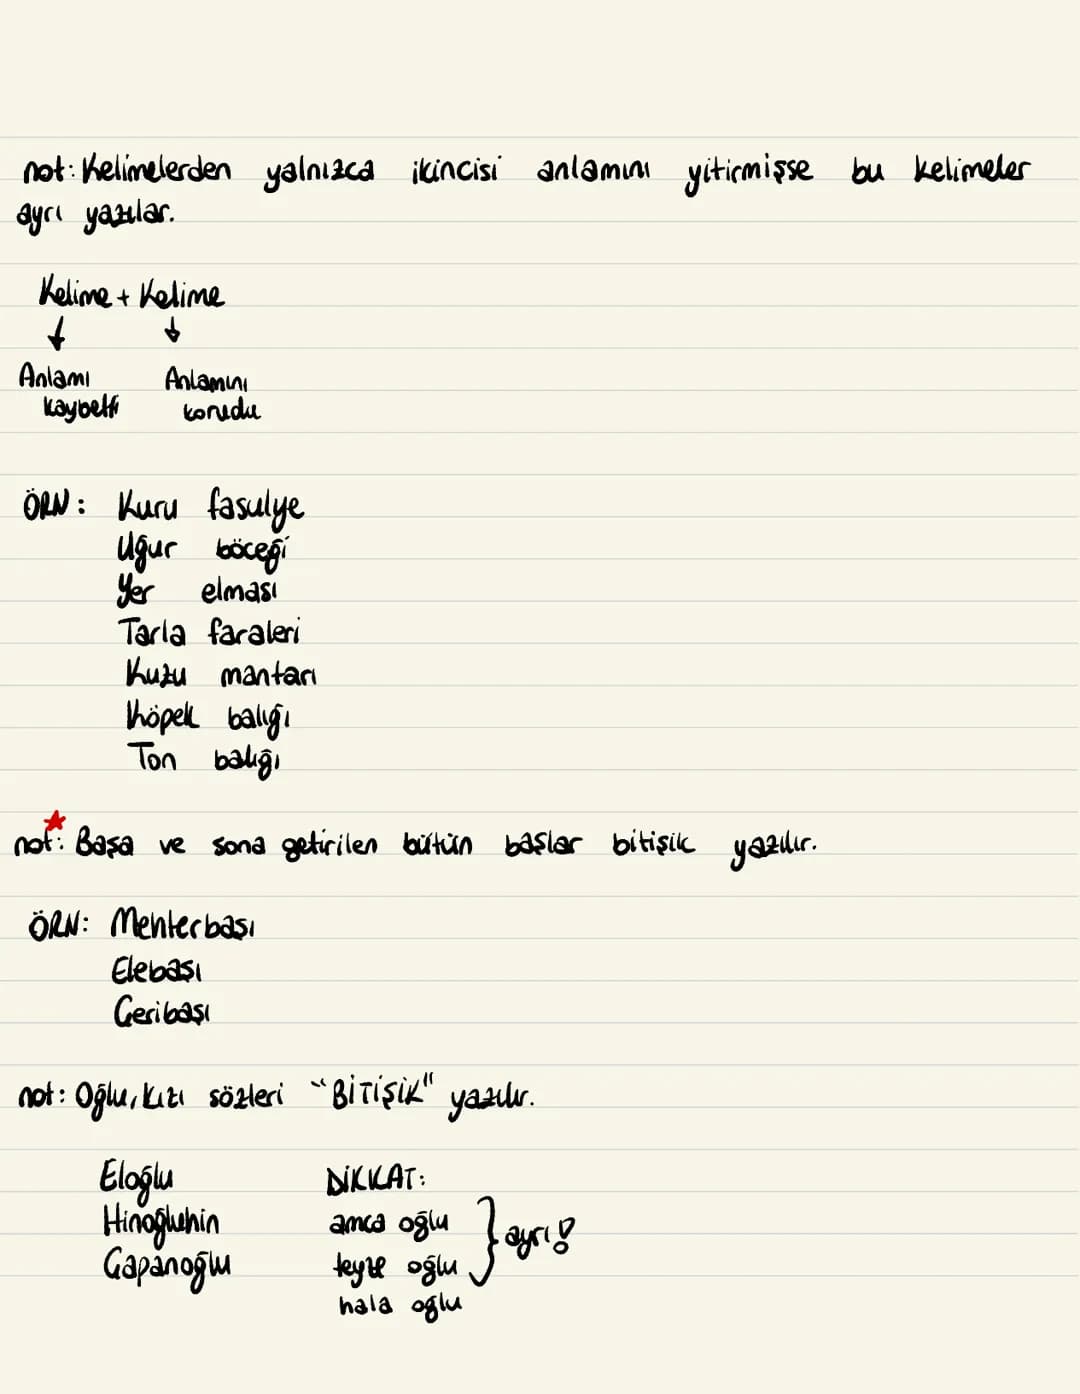 not: Kelimelerden yalnızca ikincisi anlamını yitirmişse bu kelimeler
ayrı yazılar.
Kelime + Kelime
Anlamı Anlamını
kaybetti korudu
ÖRN: Kuru fasulye
Uğur böceği
Yer elması
Tarla faraleri
Kuzu mantarı
Köpek balığı
Ton balığı
not: Başa ve sona getirilen bütün başlar bitişik yazılır.
ÖRN: Mehterbaşı
Elebaşı
Çeribaşı
not: Oğlu, kızı sözleri "BİTİŞİK" yazılır.
Eloğlu DİKKAT:
Hinoğluhin amca oğlu
Çapanoğlu teyze oğlu } ayrı!
hala oğlu